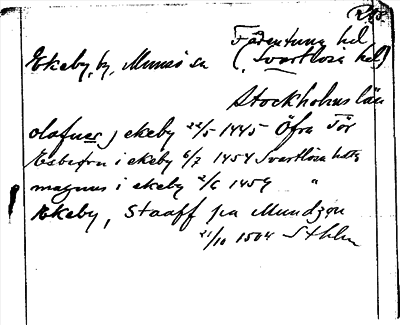 Färentuna hd
Ekeby, by, Munsö sn (Svartlösa hd)
Stockholms län
olafuer j ekeby 22/5 1445 Öfra Tör
Esbeorn i ekeby 6/7 1454 Svartlösa hds
magnus i ekeby 2/6 1459 "
Ekeby, Staaff pa Mundzøn
21/10 1504 Sthlm